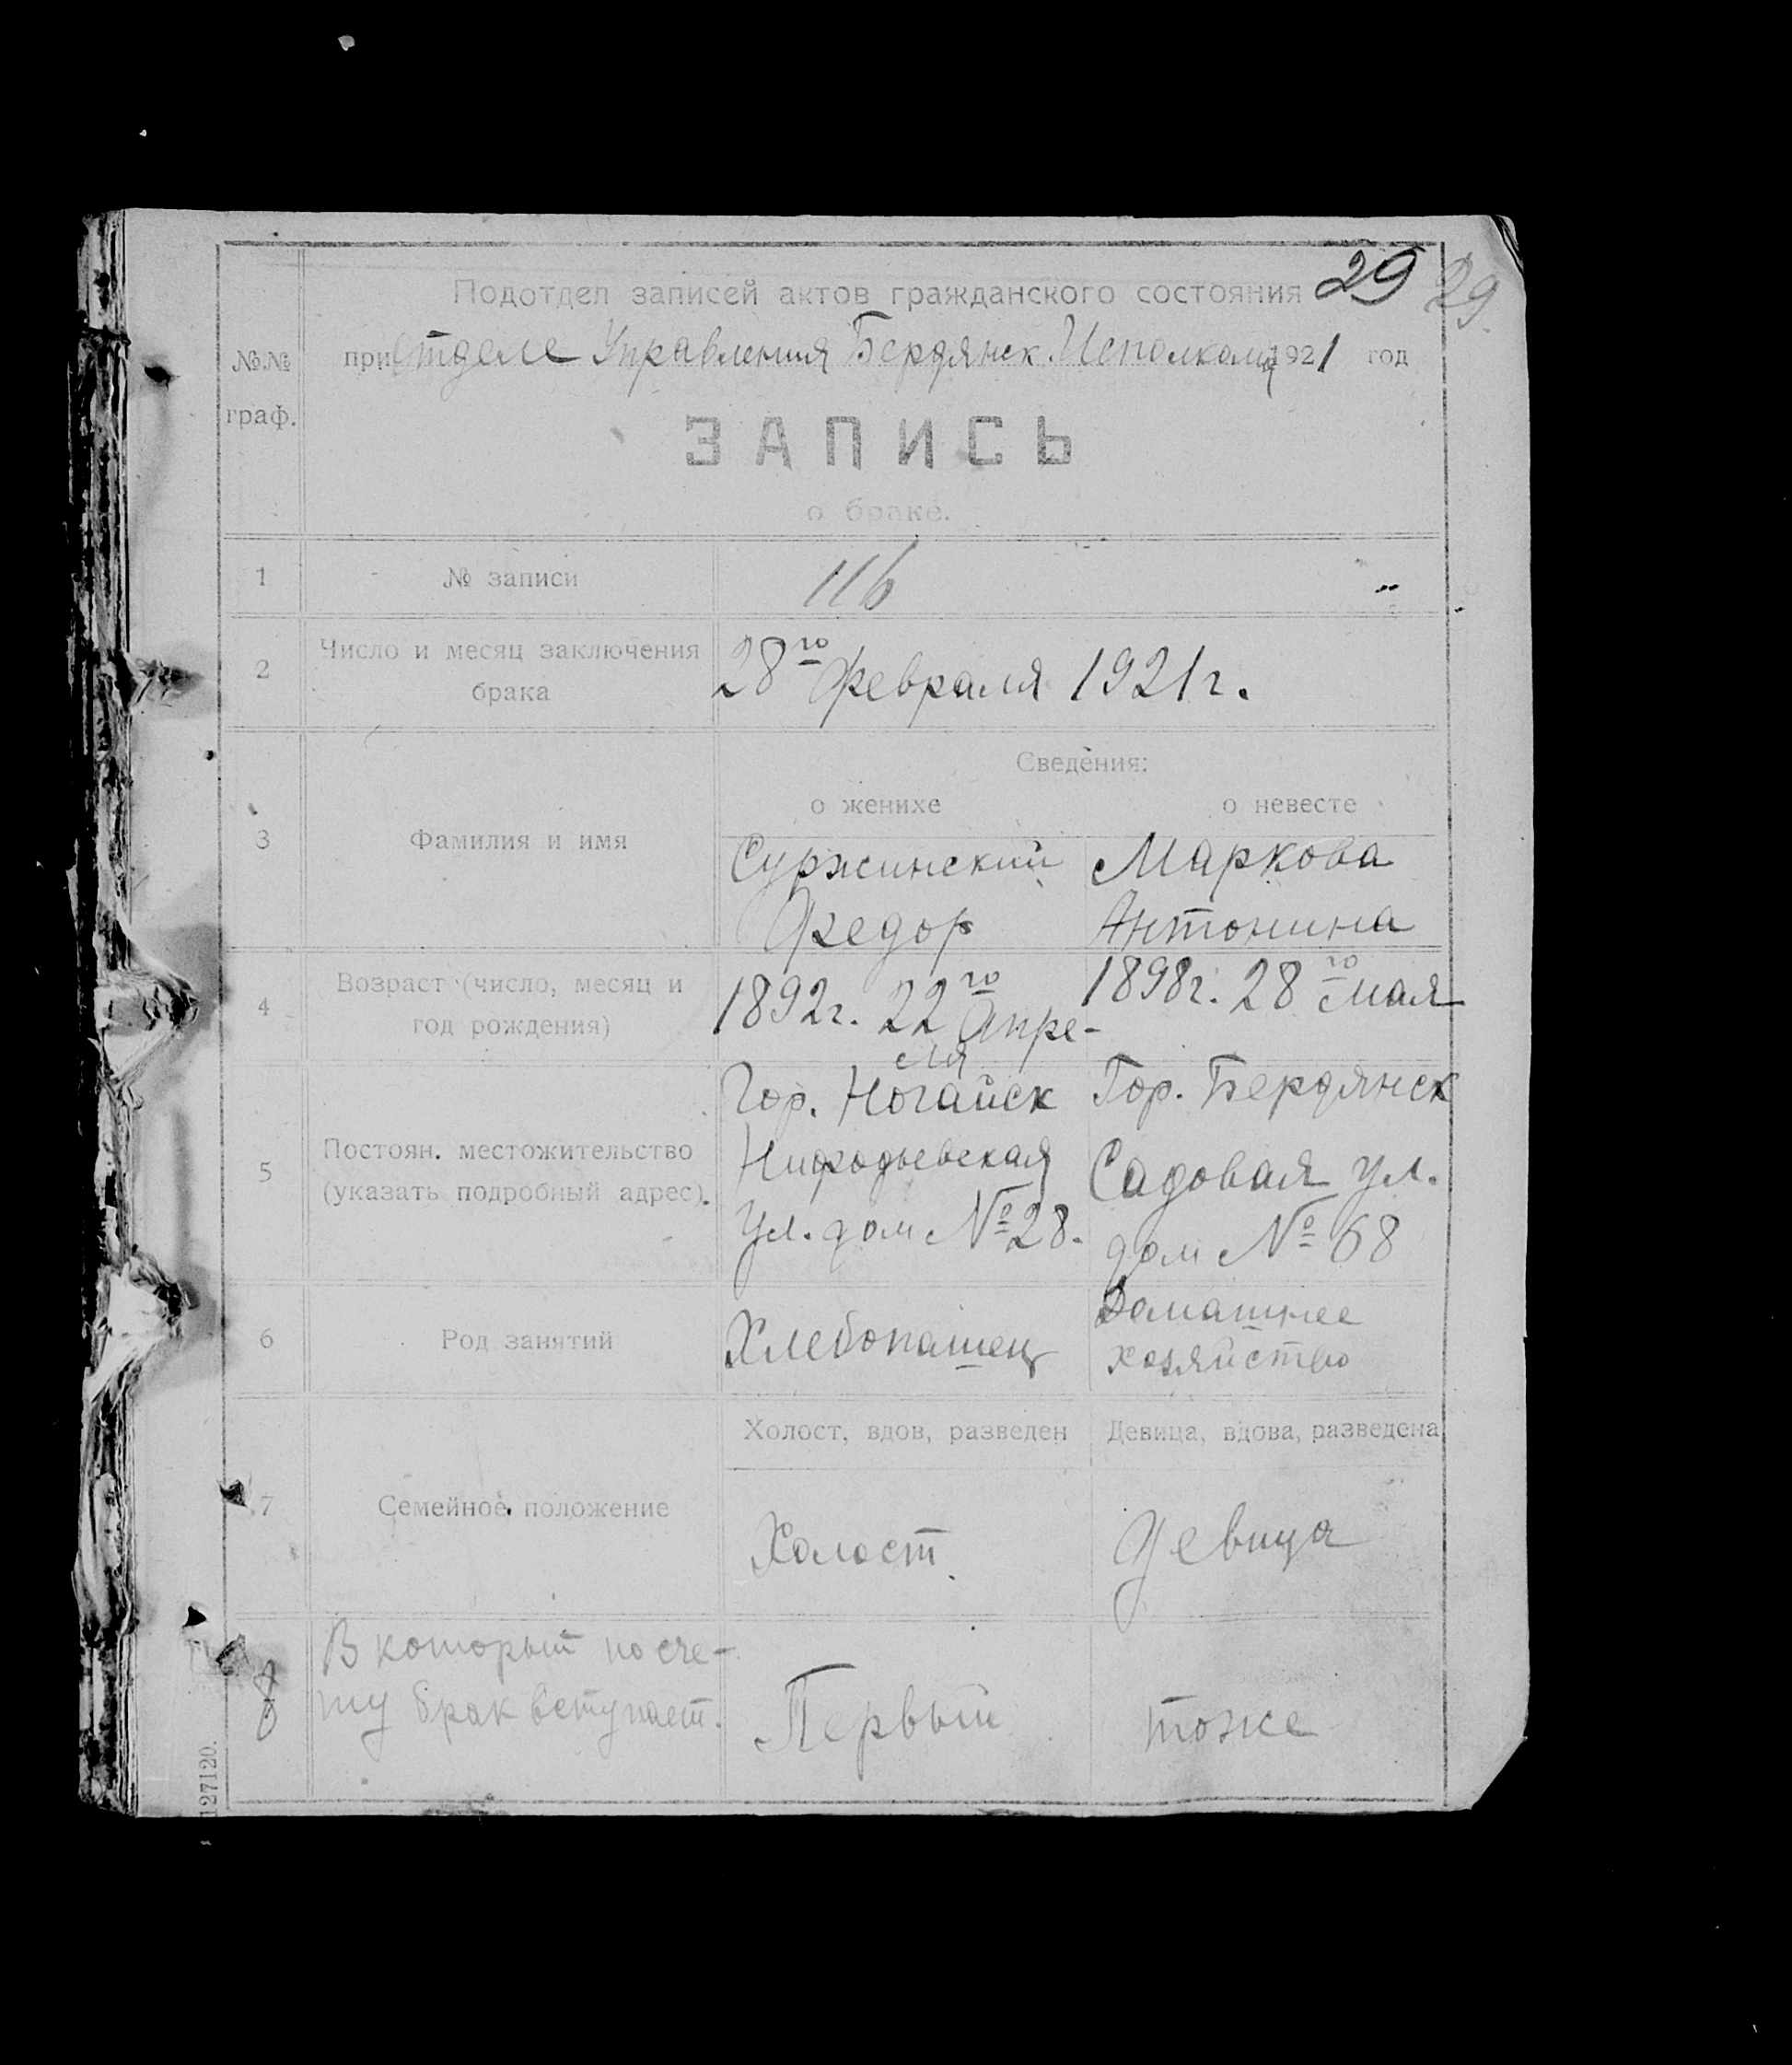 29 29
Подотдел записей актов гражданского состояния
при Отделе Управления Бердянск. Исполкома 1921 год
№№
граф.
ЗАПИСЬ
о браке.
1 № записи 116
2 Число и месяц заключения брака 28го Февраля 1921 г.
Сведения:
о женихе о невесте
3 Фамилия и имя
Суржинский Маркова
Федор Антонина
4 Возраст (число, месяц и
год рождения)
1892 г. 22го Апре-
ля
1898 г. 28го мая
5 Постоян. местожительство
(указать подробный адрес).
Гор. Ногайск
ул. дом № 28.
Гор. Бердянск
Садовая ул.
дом № 68
6 Род занятий
Хлебопашец
Домашнее
хозяйство
Холост, вдов, разведен Девица, вдова, разведена
7 Семейное положение
Холост Девица
8 В который по сче-
ту брак вступает.
Первый тоже
127120.